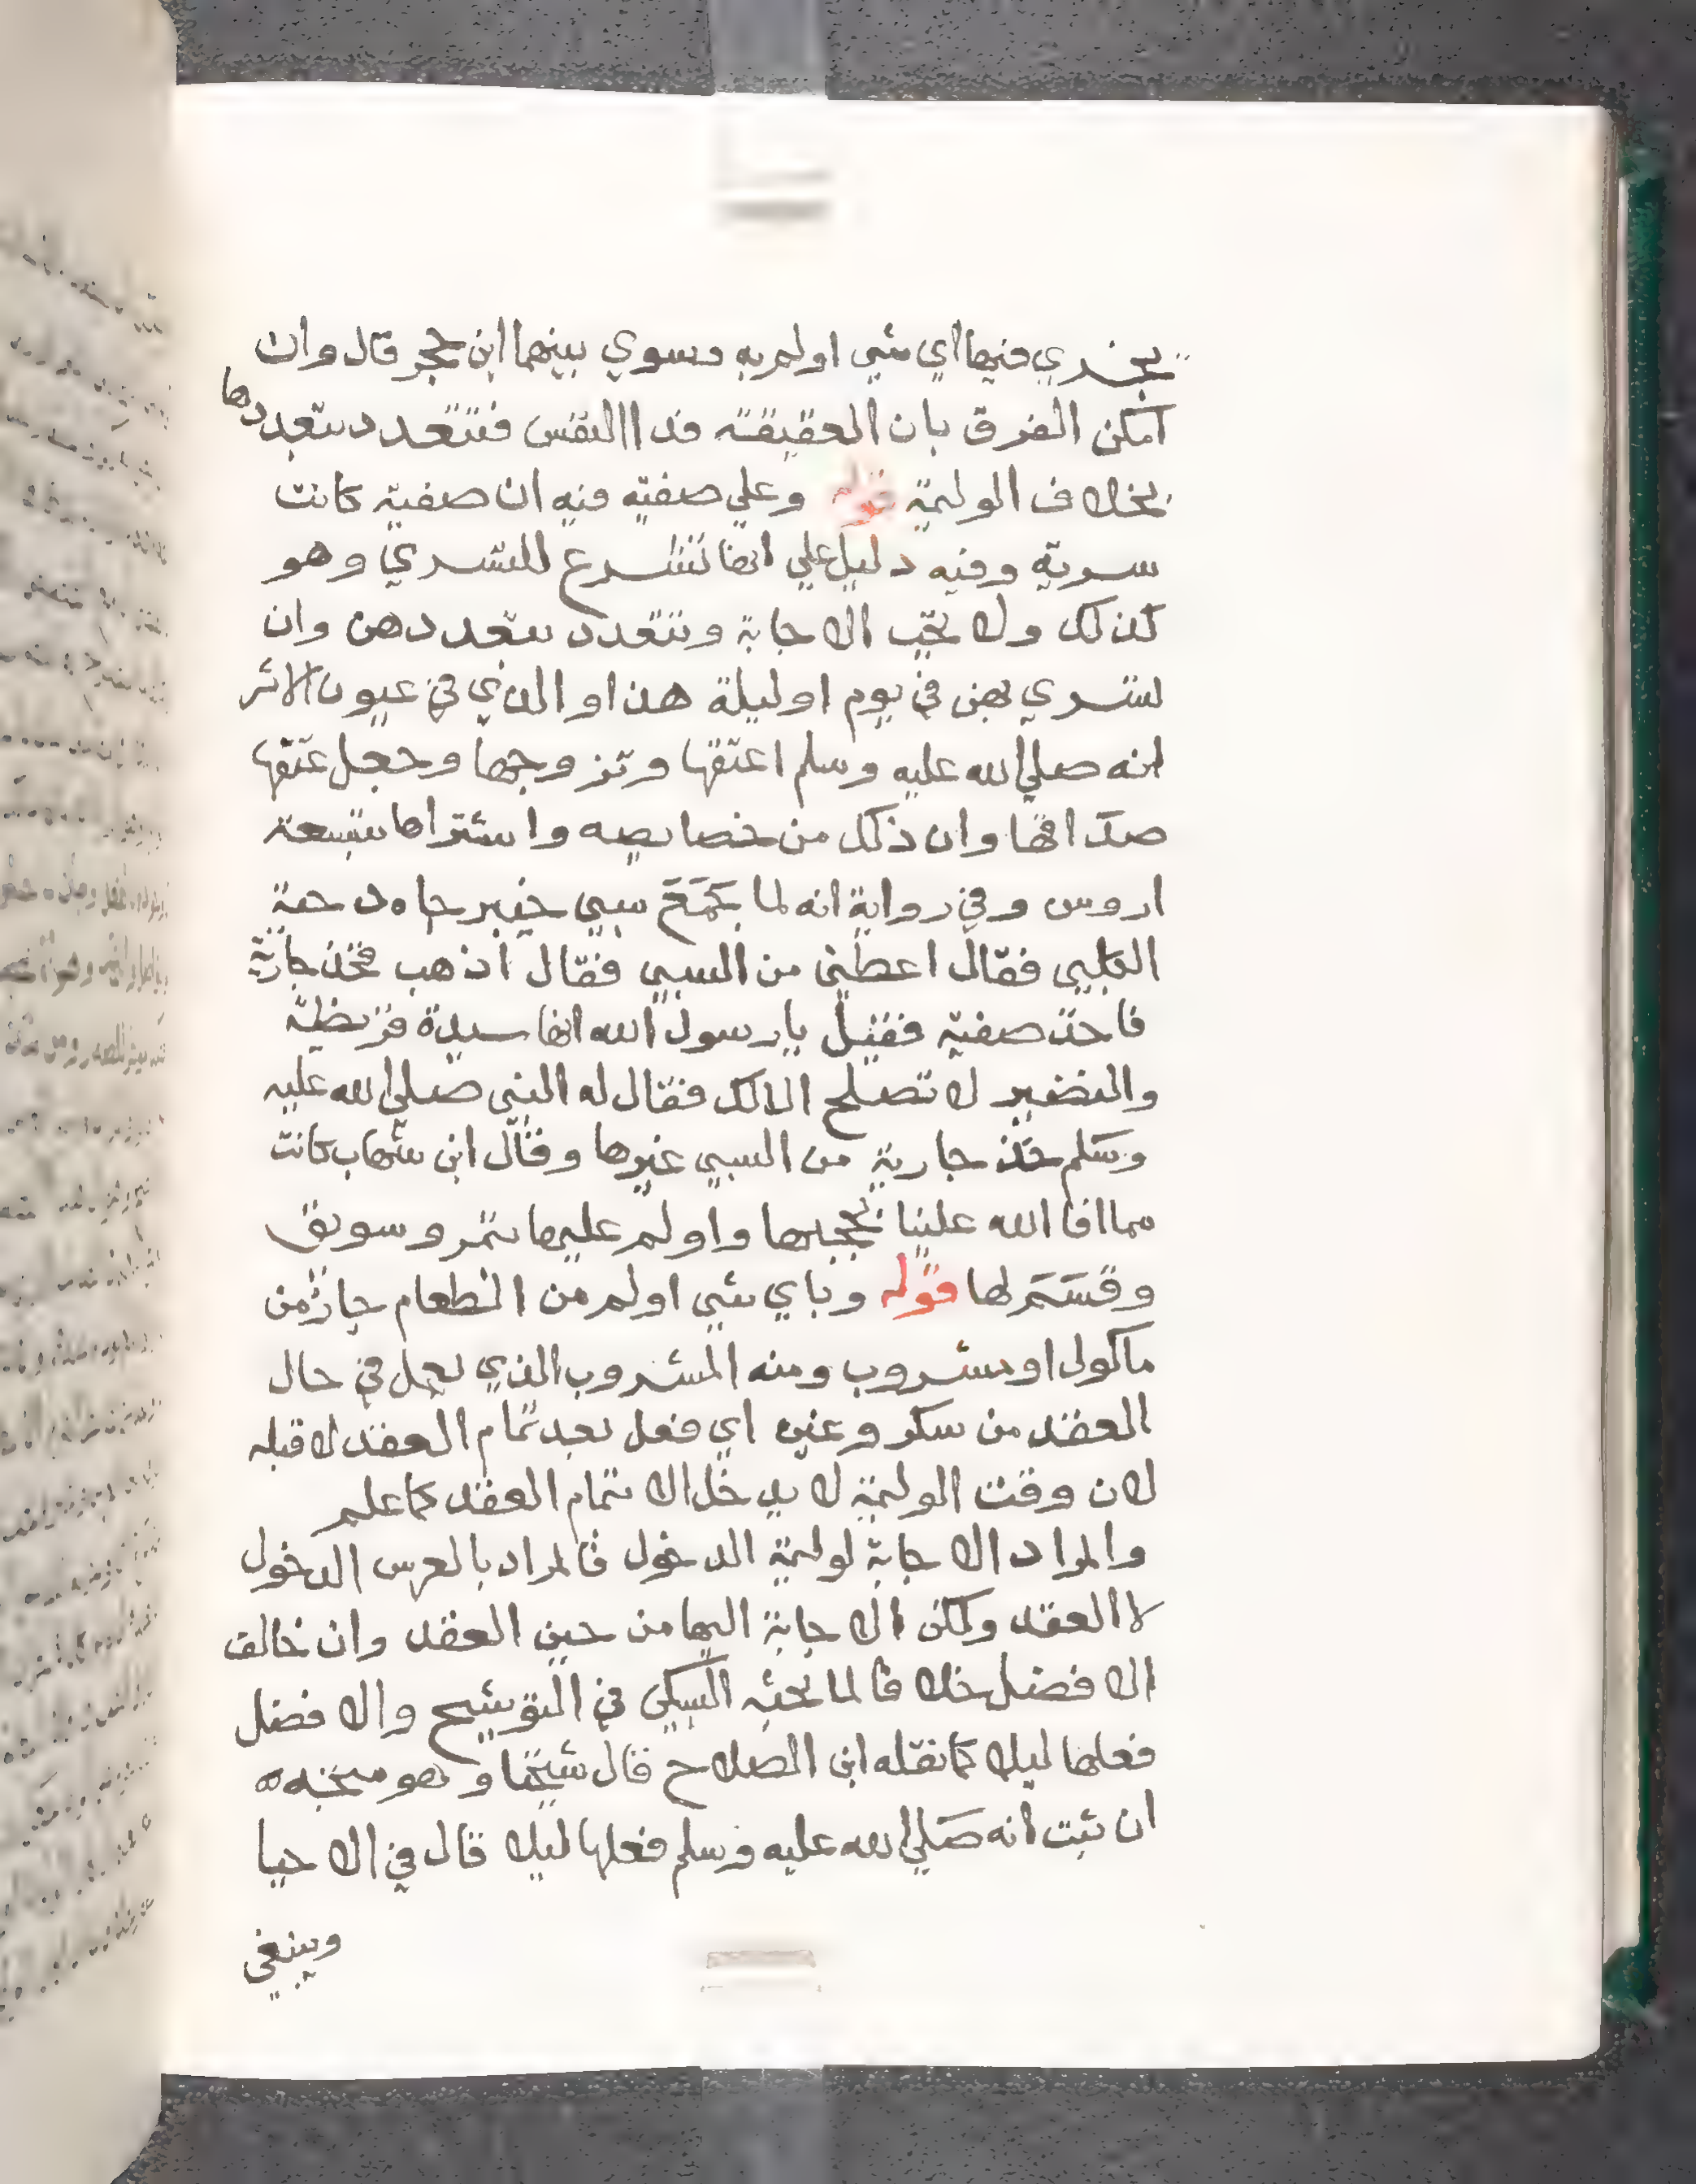 يجزي فيها اي شي اولم به وسوي بينهما ابن حجر قال وان
امكن الفرق بان العقيقة فدا النفس فتتعدد بتعددها
بخلاف الوليمة قوله وعلي صفية فيه ان صفية كانت
سرية وفيه دليل علي انها تشرع للتسري وهو
كذلك ولا تجب الاجابة وتتعدد بتعددهن وان
تسري بهن في يوم او ليلة هذا والذي في عيون الاثر
انه صلي الله عليه وسلم اعتقها وتزوجها وجعل عتقها
صداقها وان ذلك من خصايصه واشتراها بتسعة
اروس وفي رواية انه لما جمع سبي خيبر جاه دحية
الكلبي فقال اعطني من السبي فقال اذهب فخذ جارية
فاخذ صفية فقيل يا رسول الله انها سيدة قريظة
والنضير لا تصلح الا لك فقال له النبي صلي الله عليه
وسلم خذ جارية من السبي غيرها وقال ابن شهاب كانت
مما افا الله علينا فحجبها واولم عليها بتمر وسويق
وقسم لها قوله وباي شي اولم من الطعام جاز من
ماكول او مشروب ومنه المشروب الذي يعمل في حال
العقد من سكر وغيره اي فعل بعد تمام العقد لا قبله
لان وقت الوليمة لا يدخل الا بتمام العقد كما علم
والمراد الاجابة لوليمة الدخول فالمراد بالعرس الدخول
لا العقد ولكن الاجابة اليها من حين العقد وان خالف
الافضل خلافا لما بحثه السبكي في التوشيح والافضل
فعلها ليلا كما نقله ابن الصلاح قال شيخنا وهو متجه
ان ثبت انه صلي الله عليه وسلم فعلها ليلا قال في الاحيا
وينبغي